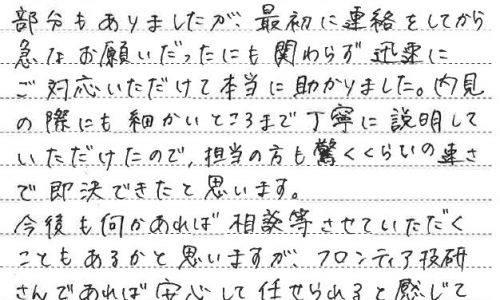 部分もありましたが、最初に連絡をしてから
急なお願いだったにも関わらず迅速に
ご対応いただけて本当に助かりました。内見
の際にも細かいところまで丁寧に説明して
いただけたので、担当の方も驚くくらいの速さ
で即決できたと思います。
今後も何かあれば相談等させていただく
こともあるかと思いますが、フロンティア技研
さんであれば安心して任せられると感じて